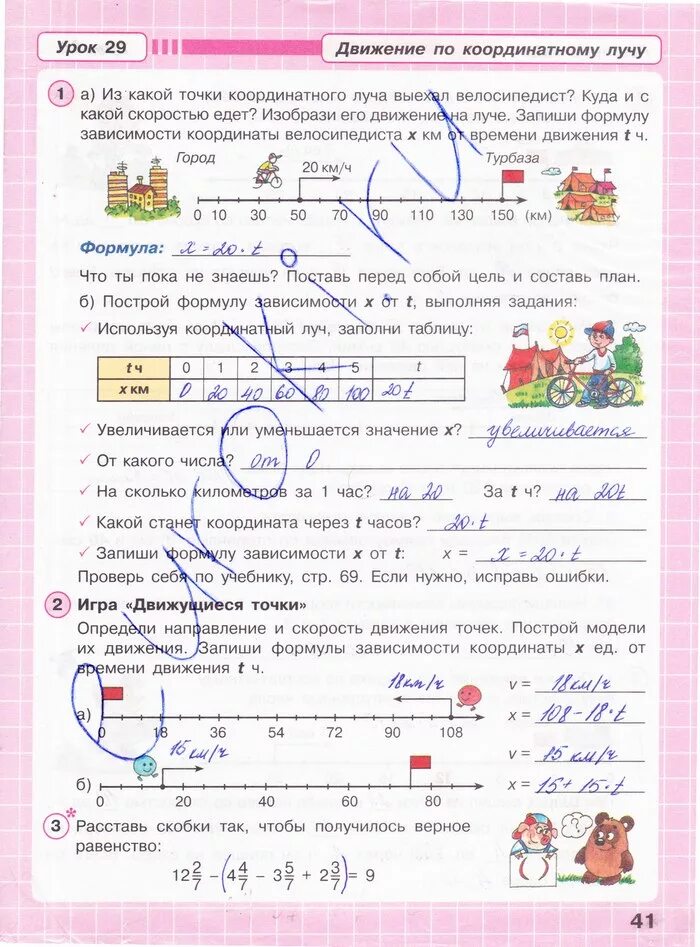 Урок 29
Движение по координатному лучу
1 а) Из какой точки координатного луча выехал велосипедист? Куда и с
какой скоростью едет? Изобрази его движение на луче. Запиши формулу
зависимости координаты велосипедиста x км от времени движения t ч.
Город 20 км/ч Турбаза
0 10 30 50 70 90 110 130 150 (км)
Формула: x = 20 · t
Что ты пока не знаешь? Поставь перед собой цель и составь план.
б) Построй формулу зависимости x от t, выполняя задания:
✓ Используя координатный луч, заполни таблицу:
t ч 0 1 2 3 4 5 t
x км 0 20 40 60 80 100 20t
✓ Увеличивается или уменьшается значение x? увеличивается
✓ От какого числа? от 0
✓ На сколько километров за 1 час? на 20 За t ч? на 20t
✓ Какой станет координата через t часов? 20·t
✓ Запиши формулу зависимости x от t: x = x = 20·t
Проверь себя по учебнику, стр. 69. Если нужно, исправь ошибки.
2 Игра «Движущиеся точки»
Определи направление и скорость движения точек. Построй модели
их движения. Запиши формулы зависимости координаты x ед. от
времени движения t ч.
18км/ч v = 18км/ч
а) 0 18 36 54 72 90 108 x = 108-18·t
15 км/ч v = 15 км/ч
б) 0 20 40 60 80 x = 15+15·t
3* Расставь скобки так, чтобы получилось верное
равенство:
12 2/7 – (4 4/7 – 3 5/7 + 2 3/7) = 9
41